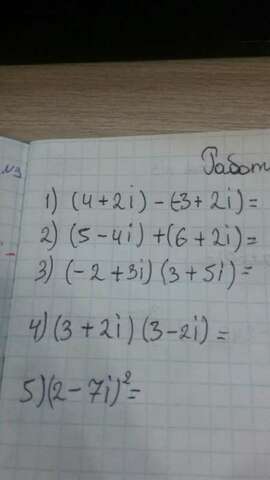 №3
Работ
1) (4+2i) - (-3+2i) =
2) (5-4i) + (6+2i) =
3) (-2+3i) (3+5i) =
4) (3+2i) (3-2i) =
5) (2-7i)² =